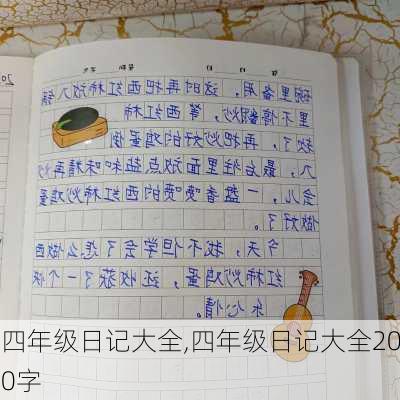 碗里备用，这时再把西红柿放入锅
里不停翻炒，等西红柿
软了，再把炒好的鸡蛋倒
入，最后往里面放点盐和味精再
会儿，一盘香喷喷的西红柿炒鸡蛋
做好了。
今天，我不但学会了怎么做西
红柿炒鸡蛋，还收获了一个快
乐心情。
四年级日记大全,四年级日记大全20
0字